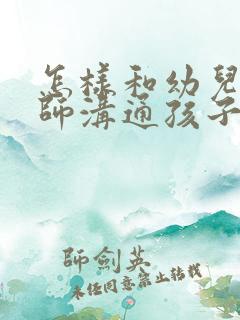 怎樣和幼兒
師溝通孩子
師劍英
未經同意禁止轉載